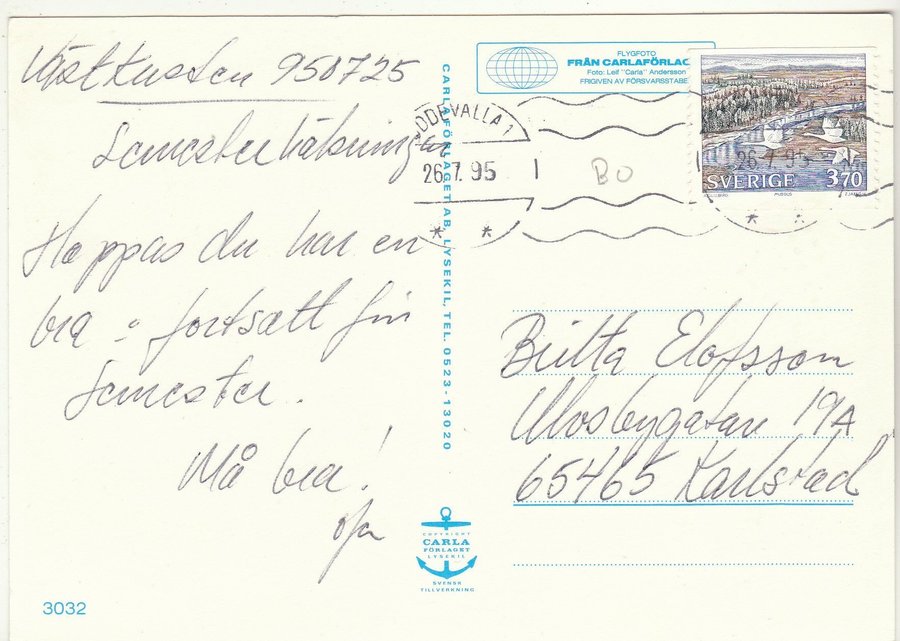 Västkusten 950725
Semesterhälsningar
Hoppas du har en
bra o fortsatt fin
Semester.
Må bra!
FLYGFOTO
FRÅN CARLAFÖRLAG
Foto: Leif "Carla" Andersson
FRIGIVEN AV FÖRSVARSSTABE
CARLAFÖRLAGET AB, LYSEKIL, TEL. 0523-13020
ODDEVALLA 1
26.7.95
BO
26.7.95
SVERIGE 3.70
Britta Elofsson
Ulvsbygatan 19A
65465 Karlstad
COPYRIGHT
CARLA
FÖRLAGET
LYSEKIL
SVENSK
TILLVERKNING
3032